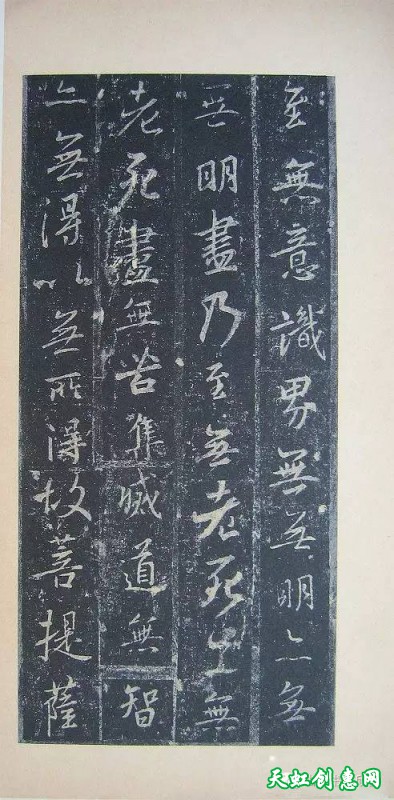 至無意識界無無明亦無
無明盡乃至無老死亦無
老死盡無苦集滅道無智
亦無得以無所得故菩提薩
天虹创惠网